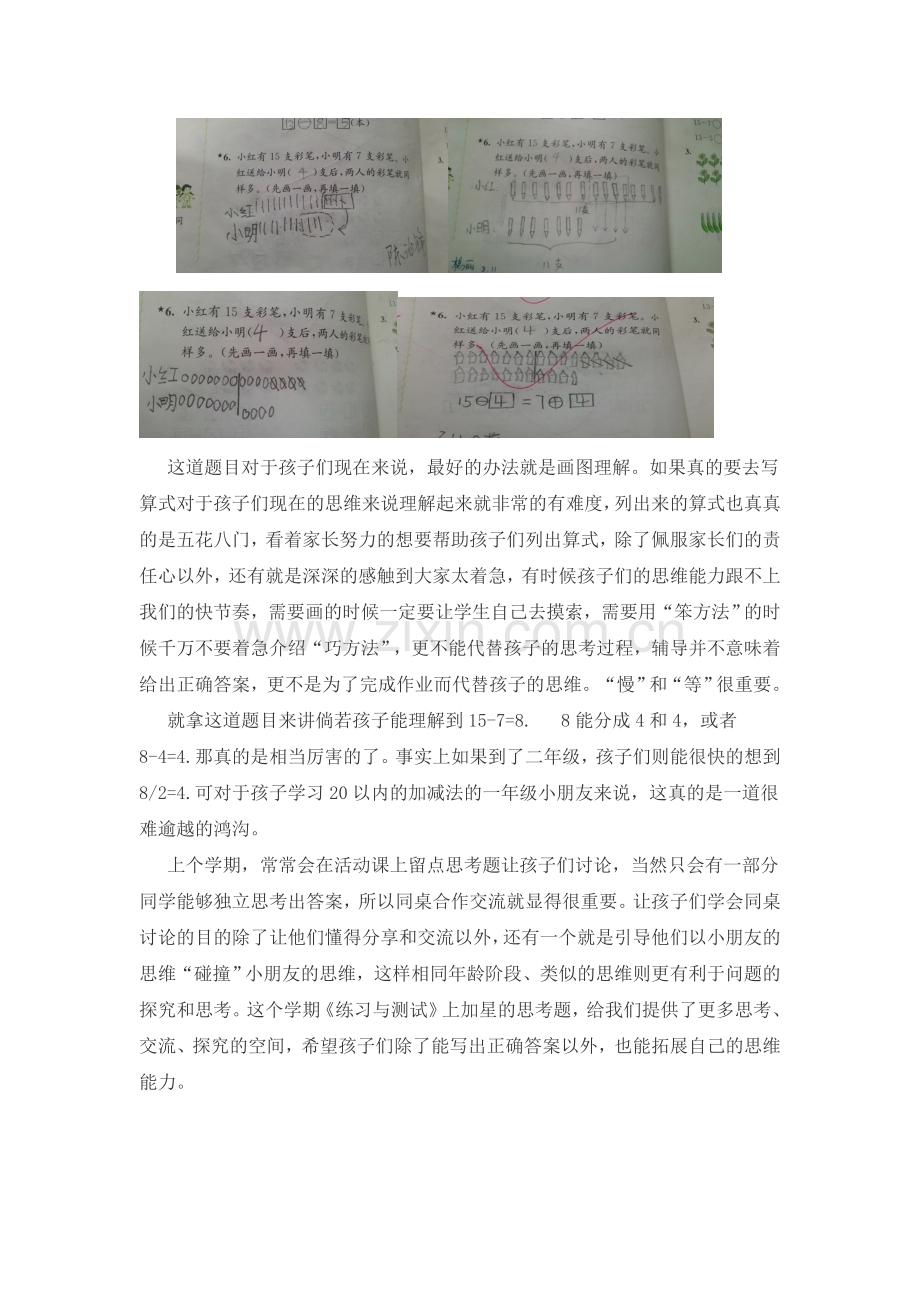 6 ⊖ 8 = 5 (本)
★6. 小红有 15 支彩笔,小明有 7 支彩笔。小
红送给小明( 4 )支后,两人的彩笔就同
样多。(先画一画,再填一填)
小红
小明
3.
★6. 小红有 15 支彩笔,小明有 7 支彩笔。小
红送给小明( 4 )支后,两人的彩笔就同
样多。(先画一画,再填一填)
小红
11支
小明
11支
3.
★6. 小红有 15 支彩笔,小明有 7 支彩笔。
红送给小明( 4 )支后,两人的彩笔就
样多。(先画一画,再填一填)
小红
小明
3.
★6. 小红有 15 支彩笔,小明有 7 支彩笔。小
红送给小明( 4 )支后,两人的彩笔就同
样多。(先画一画,再填一填)
15⊖4=7⊕4
3.
这道题目对于孩子们现在来说,最好的办法就是画图理解。如果真的要去写
算式对于孩子们现在的思维来说理解起来就非常的有难度,列出来的算式也真真
的是五花八门,看着家长努力的想要帮助孩子们列出算式,除了佩服家长们的责
任心以外,还有就是深深的感触到大家太着急,有时候孩子们的思维能力跟不上
我们的快节奏,需要画的时候一定要让学生自己去摸索,需要用“笨方法”的时
候千万不要着急介绍“巧方法”,更不能代替孩子的思考过程,辅导并不意味着
给出正确答案,更不是为了完成作业而代替孩子的思维。“慢”和“等”很重要。
就拿这道题目来讲倘若孩子能理解到 15-7=8. 8 能分成 4 和 4,或者
8-4=4.那真的是相当厉害的了。事实上如果到了二年级,孩子们则能很快的想到
8/2=4.可对于孩子学习 20 以内的加减法的一年级小朋友来说,这真的是一道很
难逾越的鸿沟。
上个学期,常常会在活动课上留点思考题让孩子们讨论,当然只会有一部分
同学能够独立思考出答案,所以同桌合作交流就显得很重要。让孩子们学会同桌
讨论的目的除了让他们懂得分享和交流以外,还有一个就是引导他们以小朋友的
思维“碰撞”小朋友的思维,这样相同年龄阶段、类似的思维则更有利于问题的
探究和思考。这个学期《练习与测试》上加星的思考题,给我们提供了更多思考、
交流、探究的空间,希望孩子们除了能写出正确答案以外,也能拓展自己的思维
能力。
www.zixin.com.cn